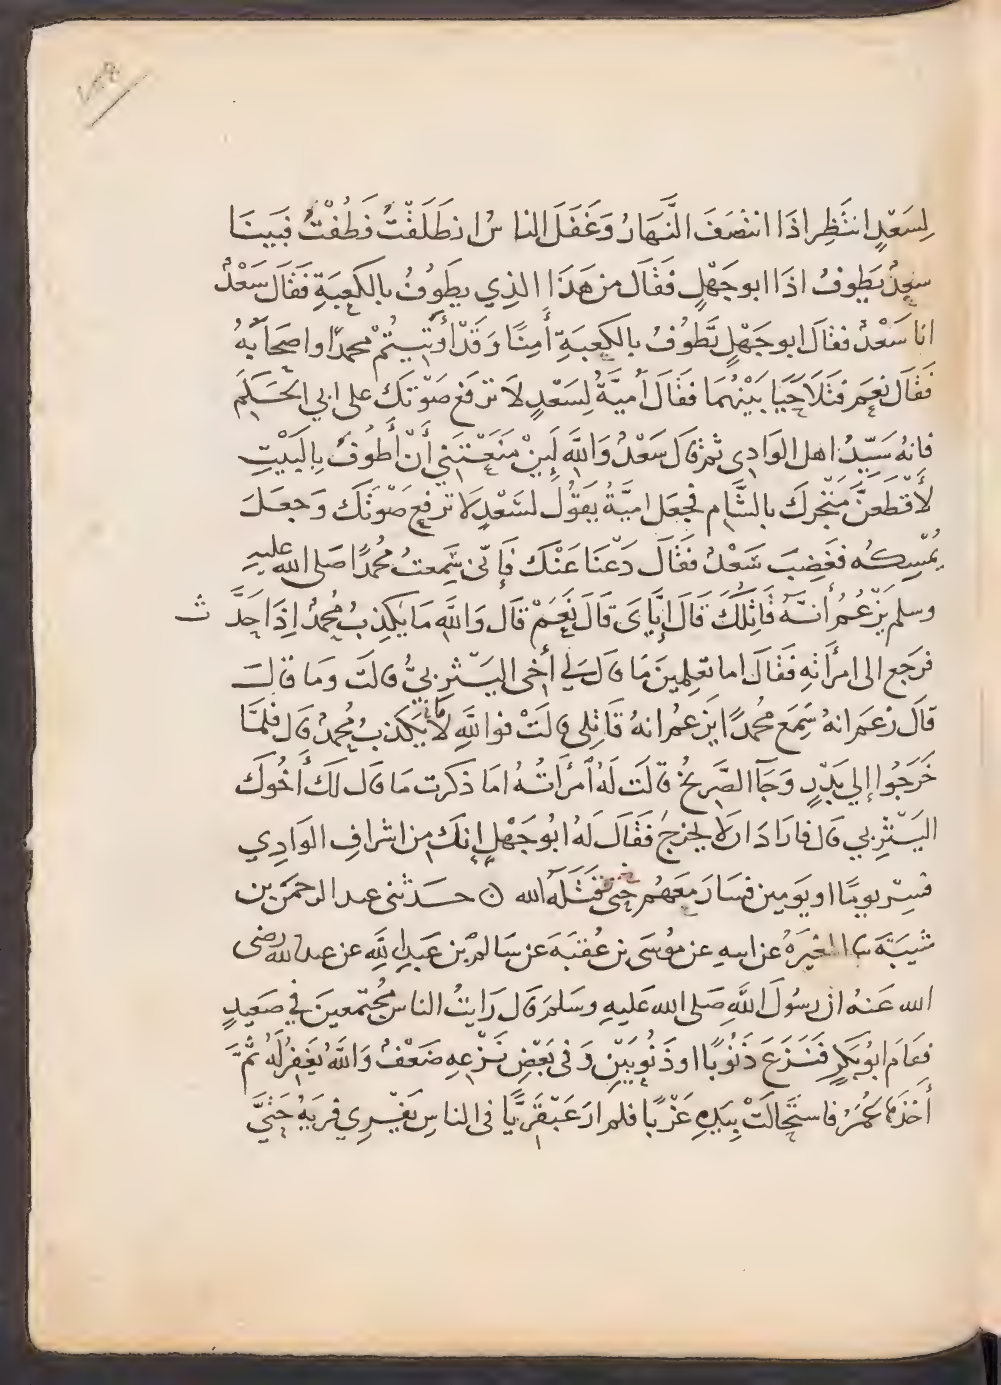 لِسَعْدٍ انتَظِر اذَا انتَصَفَ النَّهَارُ وَغَفَلَ الناسُ انطَلَقْتُ فَطُفْتُ فَبَينَا
سعدٌ يَطوفُ اذَا ابو جَهْلٍ فَقَالَ من هَذَا الذِي يطوِفُ بالكَعبَةِ فَقَالَ سَعْدٌ
انا سَعْدٌ فقالَ ابو جَهْلٍ تَطُوفُ بالكَعبَةِ أَمِنًا وَقَدْ أوَيْتُمْ محمدًا واصحَابَهُ
فَقَالَ نعَم فتَلَاحَيَا بَيْنَهُمَا فقَالَ أُميَّةُ لِسَعْدٍ لَا ترفَع صَوْتَكَ على ابي الحَكَمِ
فانهُ سَيِّدُ اهل الوادِى ثم قَالَ سَعْدٌ وَاللَّهِ لَئِنْ مَنَعْتَنِي أَنْ أَطُوفَ بِالبَيْتِ
لأَقْطَعَنَّ مَتْجَرَكَ بالشَّامِ فجعَلَ اميَّةُ يقولُ لسَعْدٍ لَا ترفع صَوْتَكَ وَجعَلَ
يُمْسِكُه فغَضِبَ سَعْدٌ فقَالَ دَعْنَا عَنْكَ فَإنّى سَمِعتُ مُحمدًا صَلى الله عليهِ
وسلم يَزْعُمُ أنهُ قَاتِلُكَ قَالَ إيَّايَ قَالَ نَعَمْ قال وَاللَّهِ مَا يَكذِبُ مُحمدٌ إذَا حَدَّث
فرَجع الى امرأتهِ فقَالَ اما تعلمينَ مَا قال لِي أخى اليَثْرِبيُّ قالَت وَما قالَ
قالَ زعَم انهُ سَمِعَ محمدًا يزعمُ انهُ قَاتِلى قالَتْ فوَاللهِ مَا يَكذبُ مُحمدٌ قال فلمَّا
خَرَجُوا إلي بَدْرٍ وَجَآ الصَّرِيخُ قالَت لهُ امرأتُهُ اما ذكرت مَا قال لكَ أَخُوكَ
اليَثْرِبي قال فارادَ ان لا يخرجَ فقَالَ لَهُ ابُو جَهْلٍ إنكَ من اشرافِ الوَادِي
فسِرْ يومًا او يومَين فسَارَ معَهُم حتى قَتَلَهُ الله ن حَدَثنى عبد الرحمَن بن
شَيبَةَ سا المغيرَةُ عن ابيهِ عن مُوسَى بن عُقبَةَ عن سَالمْ بن عَبدِ اللَّهِ عن عبد الله رضى
الله عَنهُ ان رسُولَ اللَّهِ صَلى الله عَليهِ وسَلم قال رَايتُ الناسَ مُجتَمعينَ فى صَعِيدٍ
فقَامَ ابُو بَكرٍ فَنَزَعَ ذَنُوبًا او ذَنُوبَيْنِ وَفى بَعْضِ نَزْعِهِ ضَعْفٌ وَاللهُ يَغفِرُ لَهُ ثُمَّ
أخَذَهَا عُمَرُ فاستَحَالَتْ بِيَدِهِ غَرْبًا فلم ارَ عَبْقَرِيًّا فى الناسِ يَفْرِي فَريَهُ حَتَّى